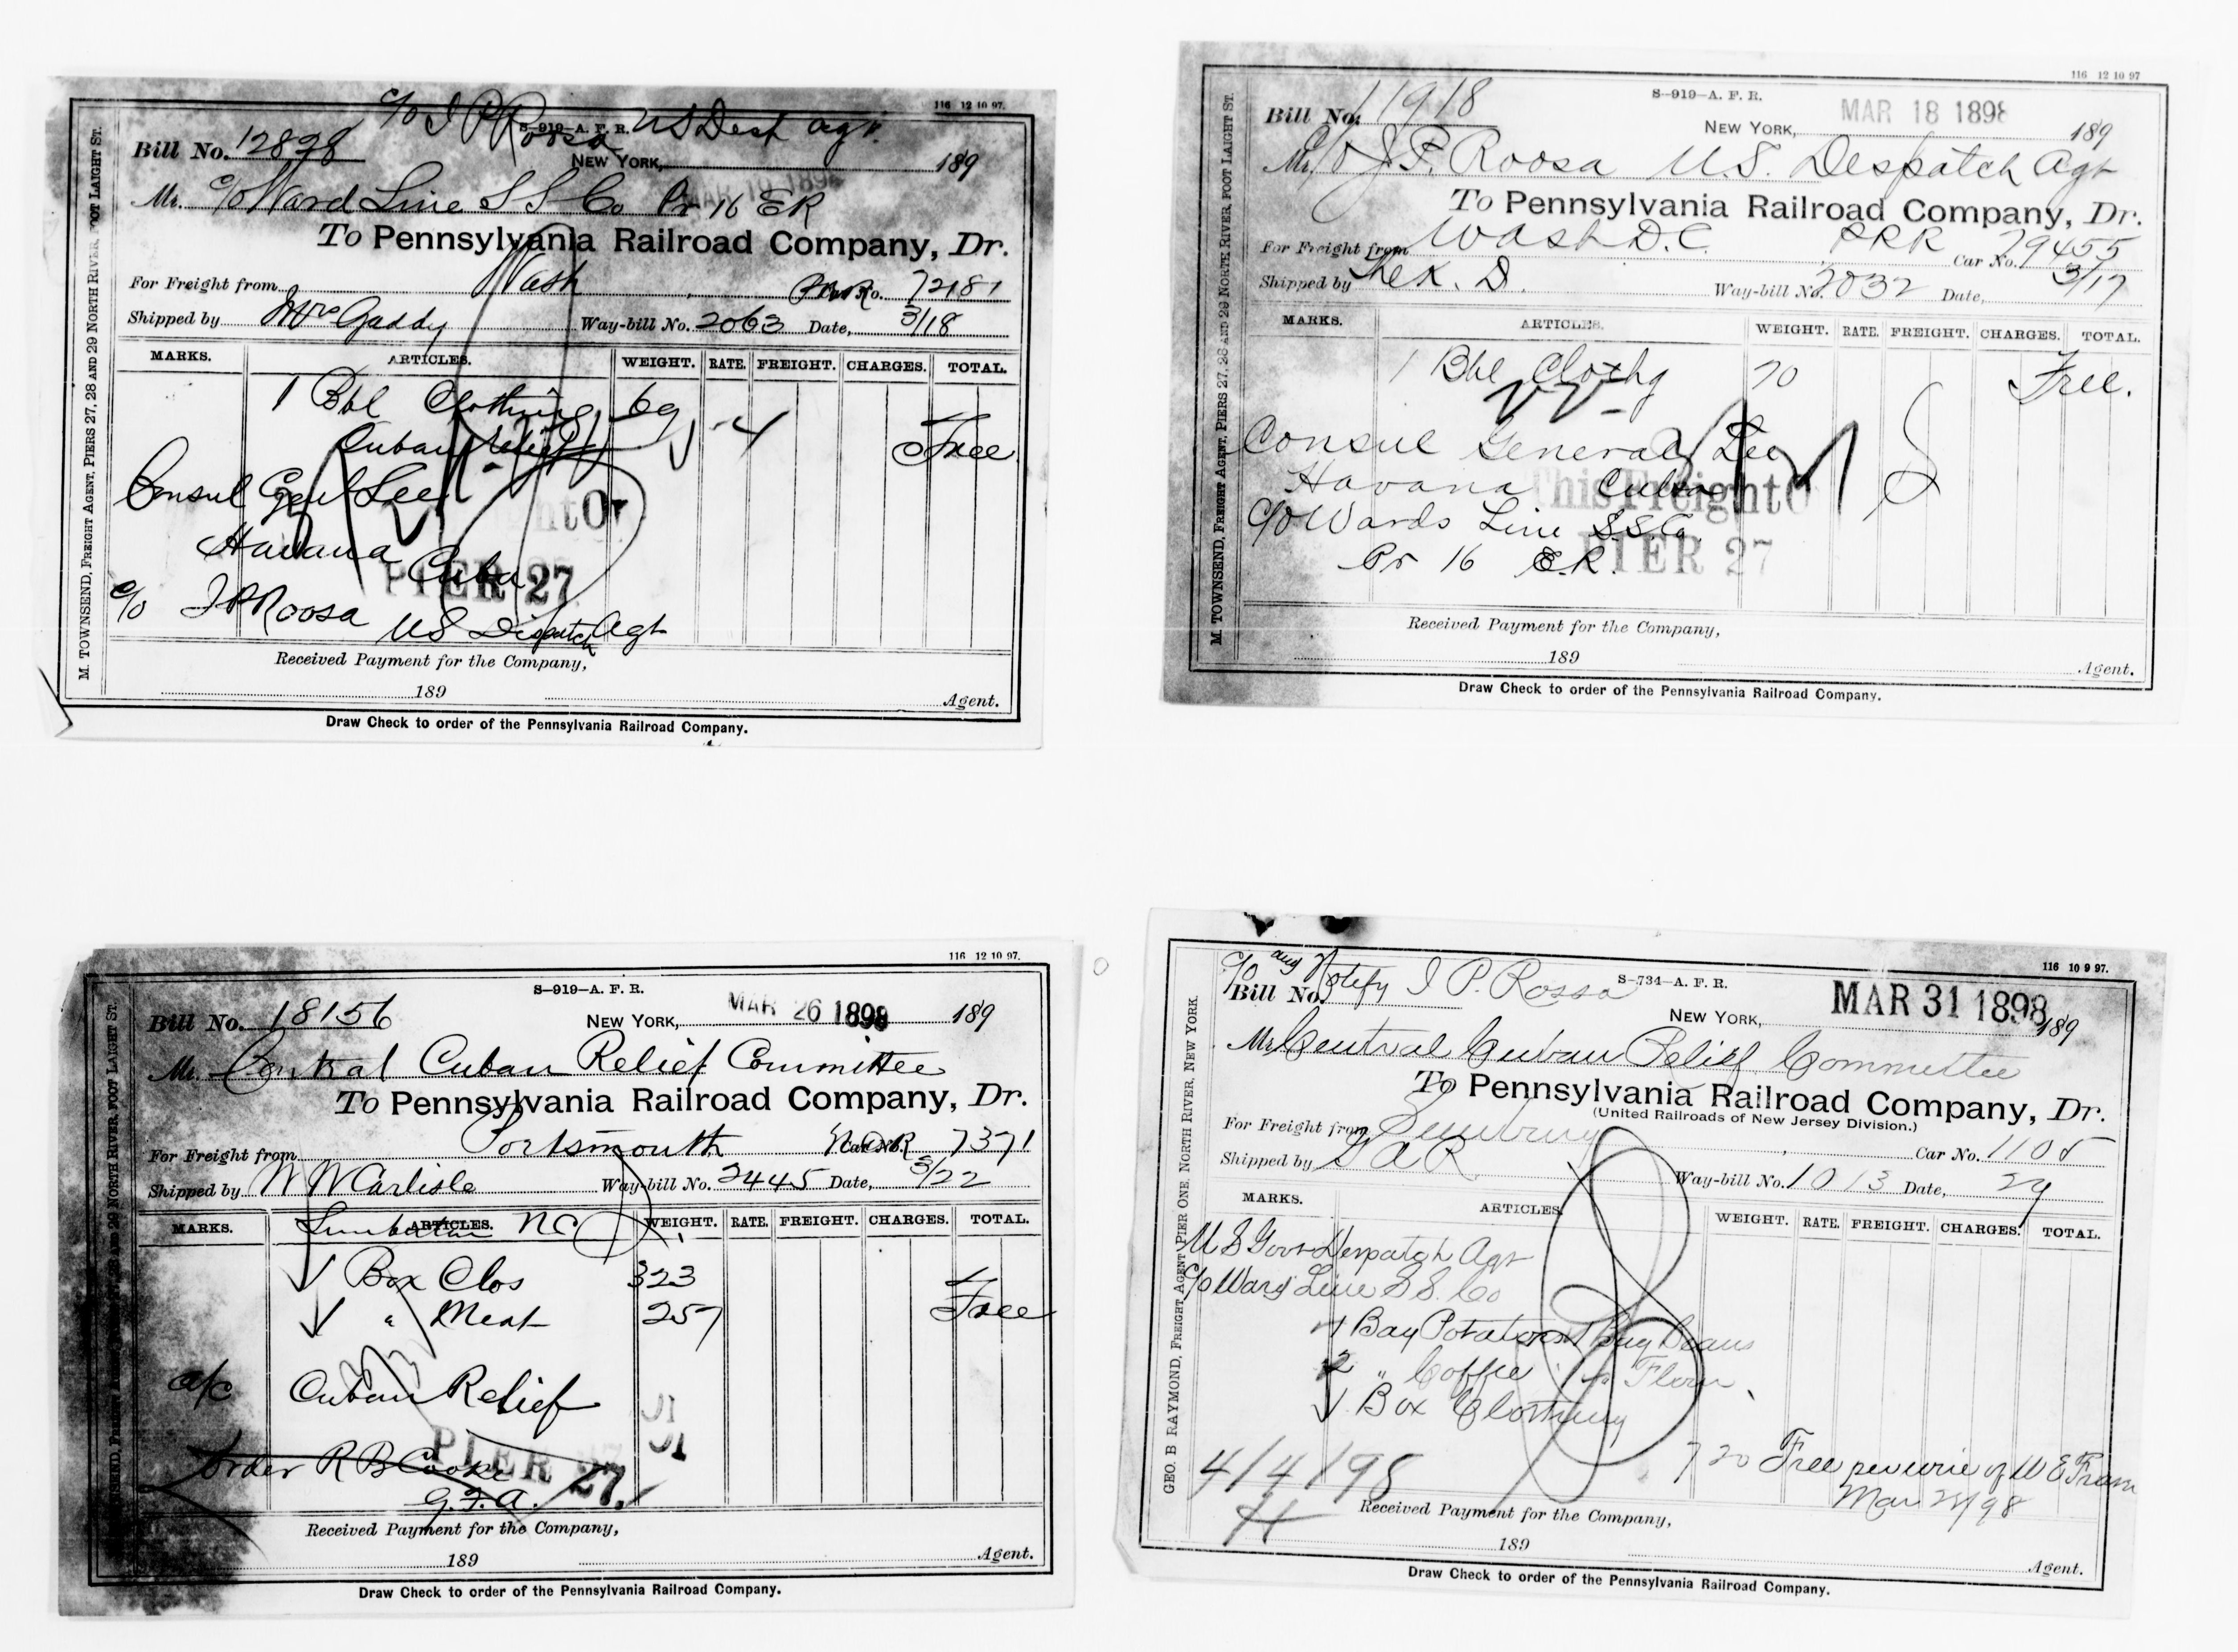 116 12 10 97.
c/o I P Roosa US Desp agt
S-919-A. F. R.
Bill No. 12828
NEW YORK, 189
Mr. c/o Ward Line S S Co Pr 16 ER
To Pennsylvania Railroad Company, Dr.
For Freight from Wash PRR No. 72181
Shipped by Mrs Gaddy Way-bill No. 2063 Date, 3/18
MARKS. ARTICLES. WEIGHT. RATE. FREIGHT. CHARGES. TOTAL.
1 Bbl Clothing 69
Cuban Relief Free
Consul Genl Lee
Havana Cuba
PIER 27
c/o I P Roosa US Dispatch Agt
Received Payment for the Company,
189 Agent.
Draw Check to order of the Pennsylvania Railroad Company.
M. TOWNSEND, FREIGHT AGENT, PIERS 27, 28 AND 29 NORTH RIVER, FOOT LAIGHT ST.
116 12 10 97
S-919-A. F. R.
Bill No. 11918
NEW YORK, MAR 18 1898 189
Mr. c/o J. P. Roosa U.S. Despatch Agt
To Pennsylvania Railroad Company, Dr.
For Freight from Wash D.C. PRR Car No. 79455
Shipped by Alex. D. Way-bill No. 2032 Date, 3/17
MARKS. ARTICLES. WEIGHT. RATE. FREIGHT. CHARGES. TOTAL.
1 Bbl Clothg 70 Free.
Consul General Lee
Havana Cuba
This Freight
c/o Wards Line S.S. Co.
Pr 16 E.R.
PIER 27
Received Payment for the Company,
189 Agent.
Draw Check to order of the Pennsylvania Railroad Company.
M. TOWNSEND, FREIGHT AGENT, PIERS 27, 28 AND 29 NORTH RIVER, FOOT LAIGHT ST.
116 12 10 97.
S-919-A. F. R.
Bill No. 18156
NEW YORK, MAR 26 1898 189
Mr. Central Cuban Relief Committee
To Pennsylvania Railroad Company, Dr.
For Freight from Portsmouth Car No. 7371
Shipped by W W Carlisle Way-bill No. 2445 Date, 3/22
MARKS. ARTICLES. WEIGHT. RATE. FREIGHT. CHARGES. TOTAL.
Lumberton NC
1 Box Clos 323
1 " Meat 257 Free
a/c Cuban Relief
PIER 27
order R B Cooke
G.F.A.
27.
Received Payment for the Company,
189 Agent.
Draw Check to order of the Pennsylvania Railroad Company.
116 10 9 97.
c/o and Notify I P. Rossa
S-734-A. F. R.
Bill No.
NEW YORK, MAR 31 1898 189
Mr. Central Cuban Relief Committee
To Pennsylvania Railroad Company, Dr.
(United Railroads of New Jersey Division.)
For Freight from Sunbury Car No. 1105
Shipped by G A R Way-bill No. 1013 Date, 29
MARKS. ARTICLES. WEIGHT. RATE. FREIGHT. CHARGES. TOTAL.
U S Govt Despatch Agt
c/o Ward Line S S. Co
1 Bag Potatoes 1 Bag Beans
2 " Coffee 1 " Flour
1 Box Clothing
720 Free per wire of W E
Mar /98
4/4/98
Received Payment for the Company,
189 Agent.
Draw Check to order of the Pennsylvania Railroad Company.
GEO. B RAYMOND, FREIGHT AGENT, PIER ONE, NORTH RIVER, NEW YORK.